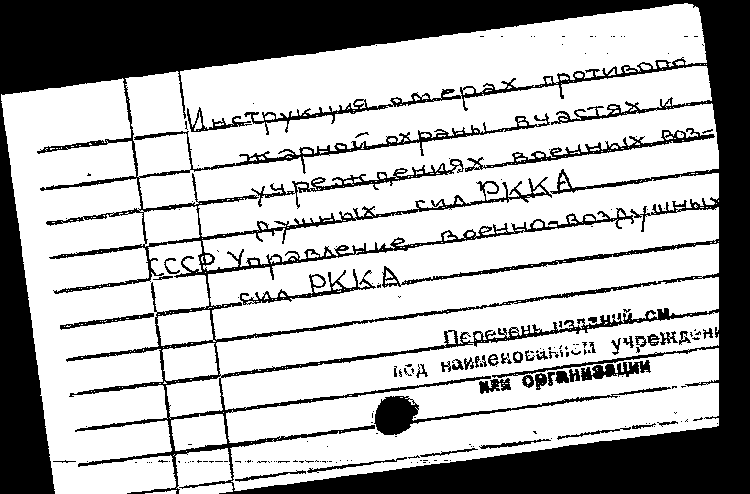 Инструкция о мерах противопо
жарной охраны в частях и
учреждениях военных воз-
душных сил РККА
СССР. Управление военно-воздушных
сил РККА
Перечень изданий см.
под наименованием учреждени
или организации